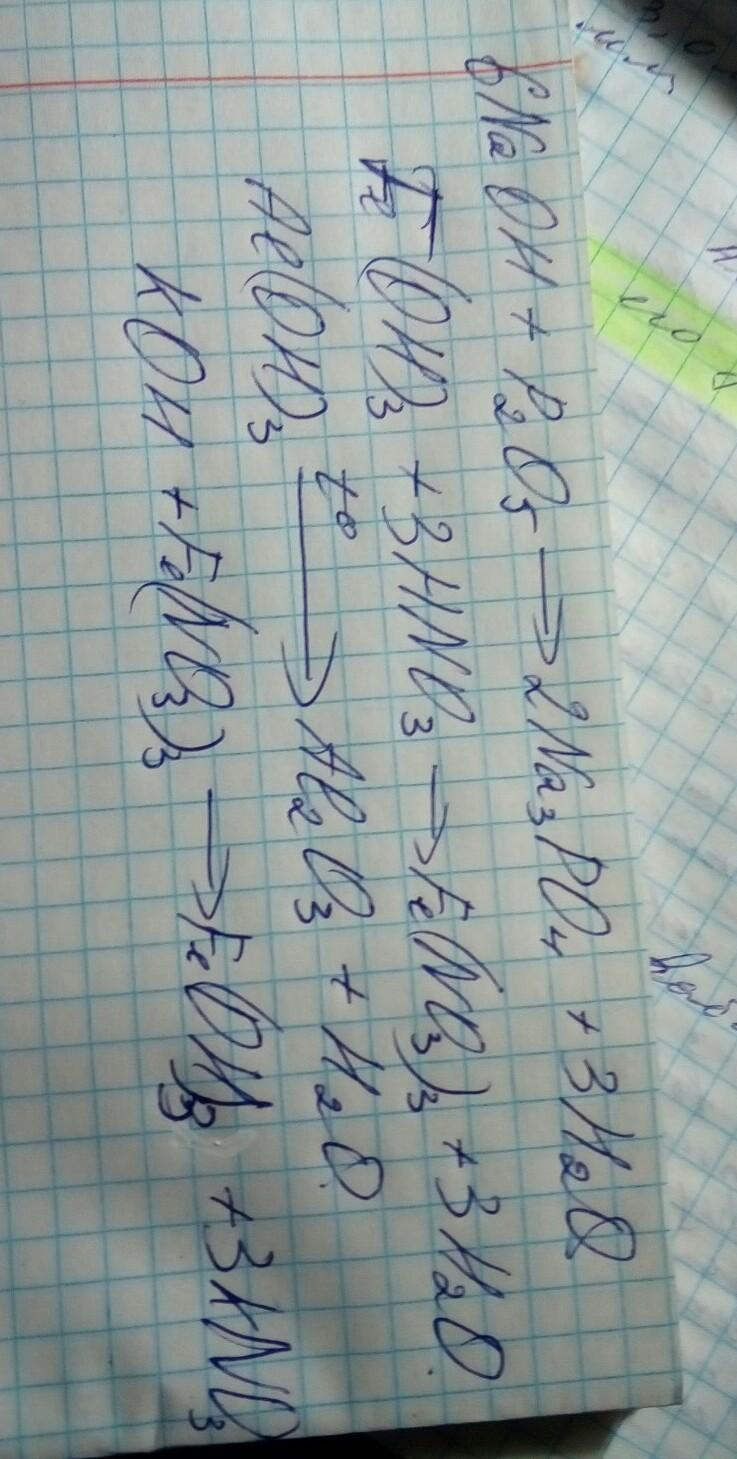 6NaOH + P₂O₅ → 2Na₃PO₄ + 3H₂O
Fe(OH)₃ + 3HNO₃ → Fe(NO₃)₃ + 3H₂O
Al(OH)₃ t° → Al₂O₃ + H₂O
KOH + Fe(NO₃)₃ → Fe(OH)₃ + 3KNO₃